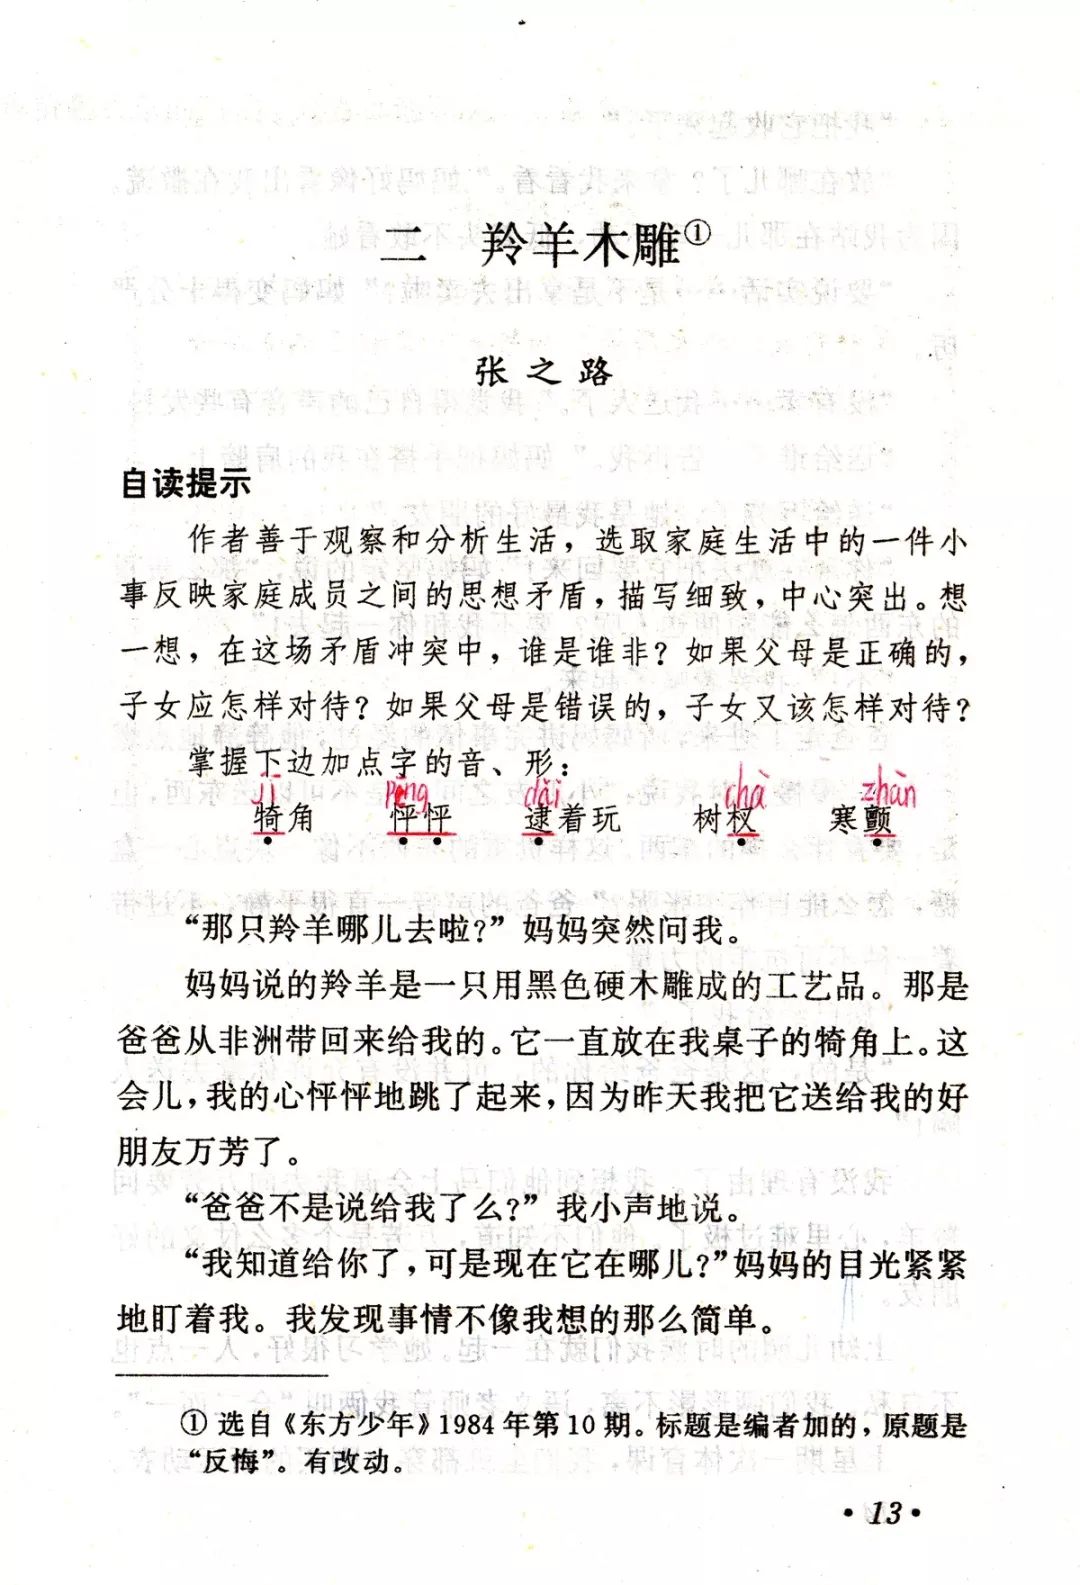 二 羚羊木雕①
张之路
自读提示
作者善于观察和分析生活，选取家庭生活中的一件小
事反映家庭成员之间的思想矛盾，描写细致，中心突出。想
一想，在这场矛盾冲突中，谁是谁非？如果父母是正确的，
子女应怎样对待？如果父母是错误的，子女又该怎样对待？
掌握下边加点字的音、形：
jī pēng dǎi chà zhàn
犄角 怦怦 逮着玩 树杈 寒颤
“那只羚羊哪儿去啦？”妈妈突然问我。
妈妈说的羚羊是一只用黑色硬木雕成的工艺品。那是
爸爸从非洲带回来给我的。它一直放在我桌子的犄角上。这
会儿，我的心怦怦地跳了起来，因为昨天我把它送给我的好
朋友万芳了。
“爸爸不是说给我了么？”我小声地说。
“我知道给你了，可是现在它在哪儿？”妈妈的目光紧紧
地盯着我。我发现事情不像我想的那么简单。
① 选自《东方少年》1984年第10期。标题是编者加的，原题是
“反悔”。有改动。
·13·